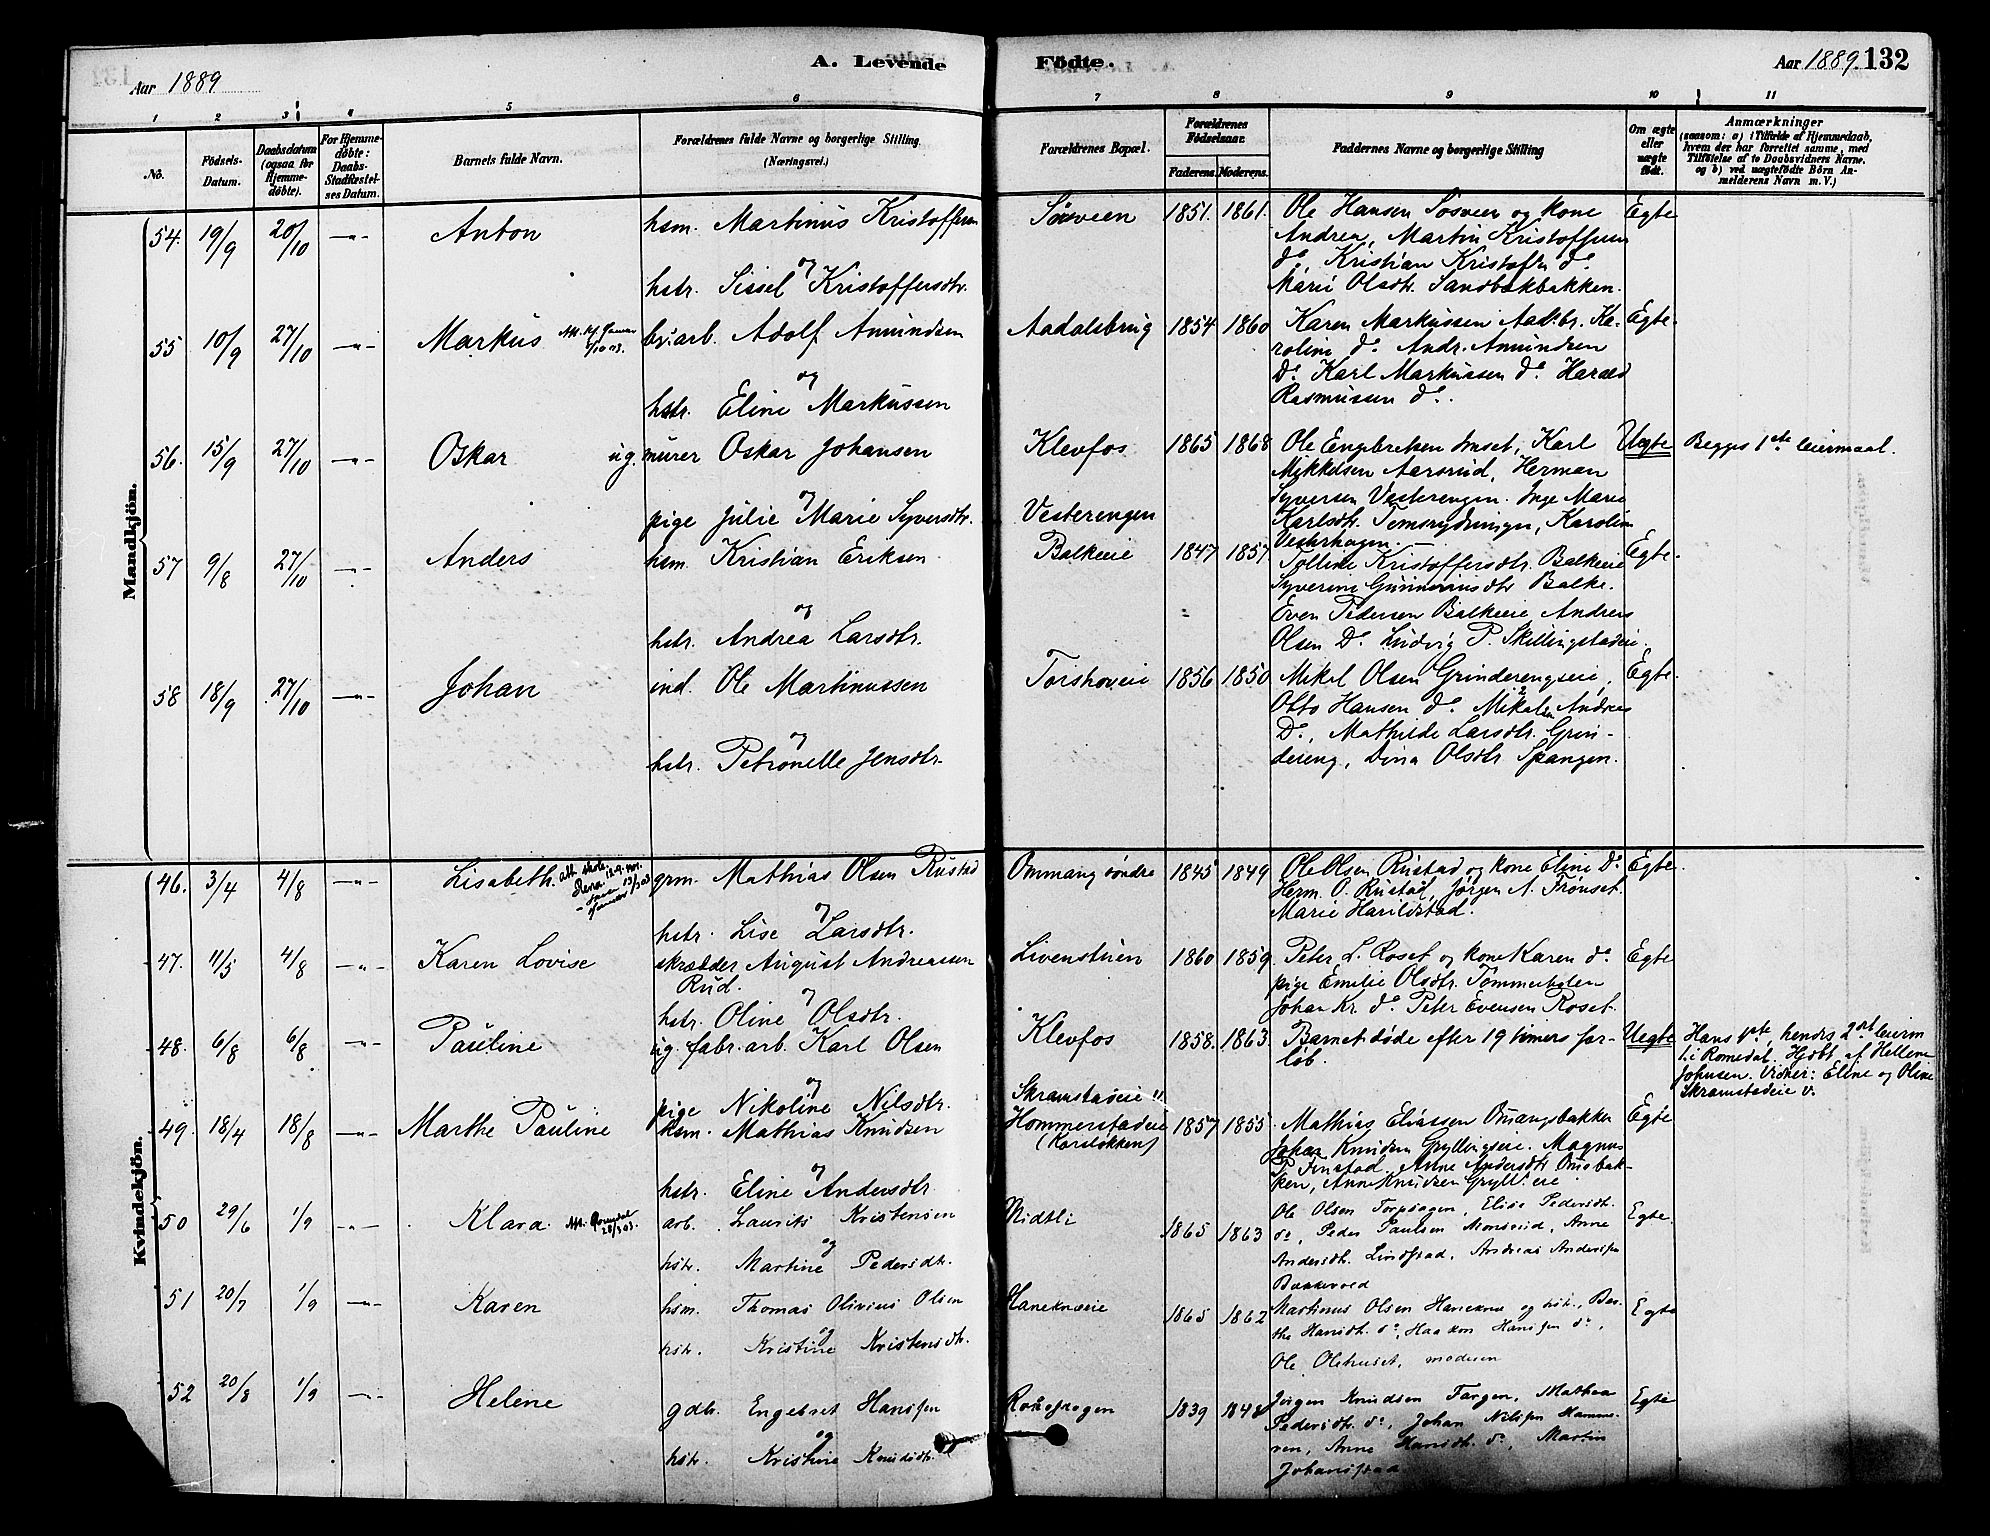 A. Levende Födte.
Aar 1889
Aar 1889. 132
1 2 3 4 5 6 7 8 9 10 11
No.
Födsels-Datum.
Daabsdatum (ogsaa for Hjemmedöbte).
For Hjemmedöbte: Daabs-Stadfæstelses Datum.
Barnets fulde Navn.
Forældrenes fulde Navne og borgerlige Stilling (Næringsvei.)
Forældrenes Bopæl.
Forældrenes Födselsaar.
Faderens. Moderens.
Faddernes Navne og borgerlige Stilling
Om ægte eller uægte födt.
Anmærkninger
(saasom: a) i Tilfælde af Hjemmedaab,
hvem der har forrettet samme, med
Tilföielse af to Daabsvidners Navne.
og b) ved uægtefödte Börn Anmelderens Navn m. V.)
Mandkjön.
54. 19/9 20/10 —"— Anton hsm. Martinus Kristoffersen
og
hstr. Sissel Kristoffersdtr.
Sösveen 1851. 1861.
Ole Hansen Sösveen og kone
Andrea, Martin Kristoffersen
do, Kristian Kristofs. do.
Marie Olsdtr. Sandbækbakken.
Egte
55 10/9 27/10 —"— Markus br.arb. Adolf Amundsen
og
hstr. Eline Markussen
Aadalsbrug 1854 1860
Karen Markussen Aad.br. Ka-
roline do. Andr. Amundsen
Do. Karl Markussen do. Harald
Rasmussen do.
Egte.
56. 15/9 27/10 —"— Oskar ug. murer Oskar Johansen
og
pige Julie Marie Syversdtr.
Klevfos
Vesterengen
1865 1868
Ole Engebretsen Imset, Karl
Mikkelsen Aarsrud, Herman
Syversen Vesterengen. Inge Marie
Karlsdtr. Tomsrydningen, Karoline
Vesterhagen.
Uegte Begges 1ste leiermaal.
57 9/8 27/10 —"— Anders hsm. Kristian Eriksen
og
hstr. Andrea Larsdtr.
Balkeeie 1847 1857
Tolline Kristoffersdtr. Balkeeie
Syverine Gunneriusdtr Balke.
Even Pedersen Balkeeie Andreas
Olsen Do. Ludvig P. Skillingstadeie.
Egte.
58 18/9 27/10 —"— Johan ind. Ole Martinussen
og
hstr. Petronelle Jensdtr.
Torshoveie 1856 1850
Mikel Olsen Grinderengseie,
Otto Hansen do. Mikal Andreas
Do., Mathilde Larsdtr. Grin-
dereng, Dina Olsdtr Spangen.
Egte.
Kvindekjön.
46. 3/4 4/8 —"— Lisabeth. grm. Mathias Olsen Rustad
og
hstr. Lise Larsdtr.
Ommang söndre 1845 1849
Ole Olsen Rustad og kone Eline Do.
Herm. O. Rustad, Jörgen A. Frönset.
Marie Harildstad.
Egte.
47. 11/5 4/8 —"— Karen Lovise skrædder August Andreassen
Rud. og
hstr. Oline Olsdtr.
Livenstuen 1860 1859.
Peter L. Roset og kone Karen do.
pige Emilie Olsdtr. Tommerholen
Johan Kr. do. Peter Evensen Roset.
Egte
48. 6/8 6/8 —"— Pauline ug. fabr. arb. Karl Olsen
og
pige Nikoline Nilsdtr.
Klevfos
Skramstadeie v.
1858. 1863.
Barnet döde efter 19 timers for-
löb.
Uegte
Hans 1ste, hendes 2det leierm
l. i Romedal. Hjdbt. af Hellene
Johnsen. Vidner: Eline og Oline
Skramstadeie v.
49. 18/4 18/8 —"— Marthe Pauline hsm. Mathias Knudsen
og
hstr. Eline Andersdtr.
Hommerstadeie
(Karslökken)
1857 1855
Mathias Eliassen Omangbakken
Johan Knudsen Gryllingseie. Magnus
P. Imstad. Anne Andersdtr Omsbak-
ken, Anne Knudsen Gryll.eie
Egte
50 29/6 1/9 —"— Klara arb. Laurits Kristensen
og
hstr. Martine Pedersdtr.
Midtli 1865 1863
Ole Olsen Torpsagen, Elise Pedersdtr.
do, Peder Paulsen Monserud, Anne
Andersdtr. Lindstad, Andreas Andersen
Bakkevold
Egte
51 20/7 1/9 —"— Karen hsm. Thomas Olivius Olsen
og
hstr. Kristine Kristensdtr.
Hanekneeie 1865 1862
Martinus Olsen Hanekne og hstr., Ber-
the Hansdtr. do, Haakon Hansen do,
Ole Olehuset, moderen
Egte
52 20/8 1/9 —"— Helene gdbr. Engebret Hanssen
og
hstr. Kristine Knudsdtr.
1839 1848
Jörgen Knudsen Targen, Mathea
Pedersdtr. do, Johan Nilsen Hamme-
ren, Anne Hansdtr. do, Martin
Johanistad
Egte